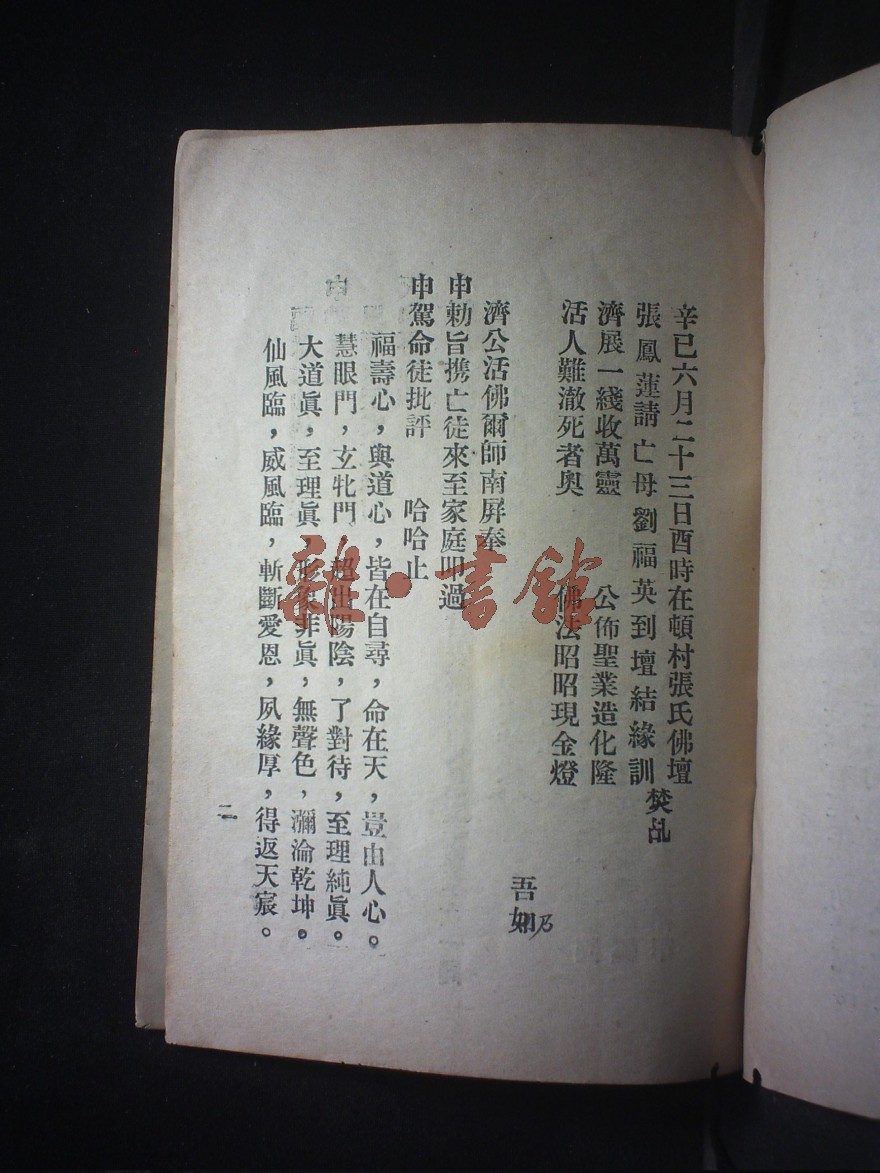 辛巳六月二十三日酉時在頓村張氏佛壇
張鳳蓮請亡母劉福英到壇結緣訓 焚乩
濟展一綫收萬靈 公佈聖業造化隆
活人難澈死者奧 佛法昭昭現金燈
吾乃
濟公活佛爾師南屏奉
申勅旨携亡徒來至家庭叩過
申駕命徒批評 哈哈止
福壽心，與道心，皆在自尋，命在天，豈由人心。
慧眼門，玄牝門，超出陽陰，了對待，至理純眞。
大道眞，至理眞，形象非眞，無聲色，瀰淪乾坤。
仙風臨，威風臨，斬斷愛恩，夙緣厚，得返天宸。
二
雜·書館